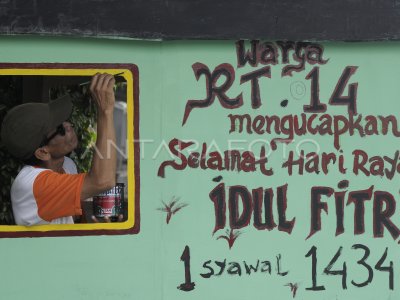 Warga
RT. 14
mengucapkan
Selamat Hari Raya
IDUL FITR
1 syawal 1434
ANTARAFOTO